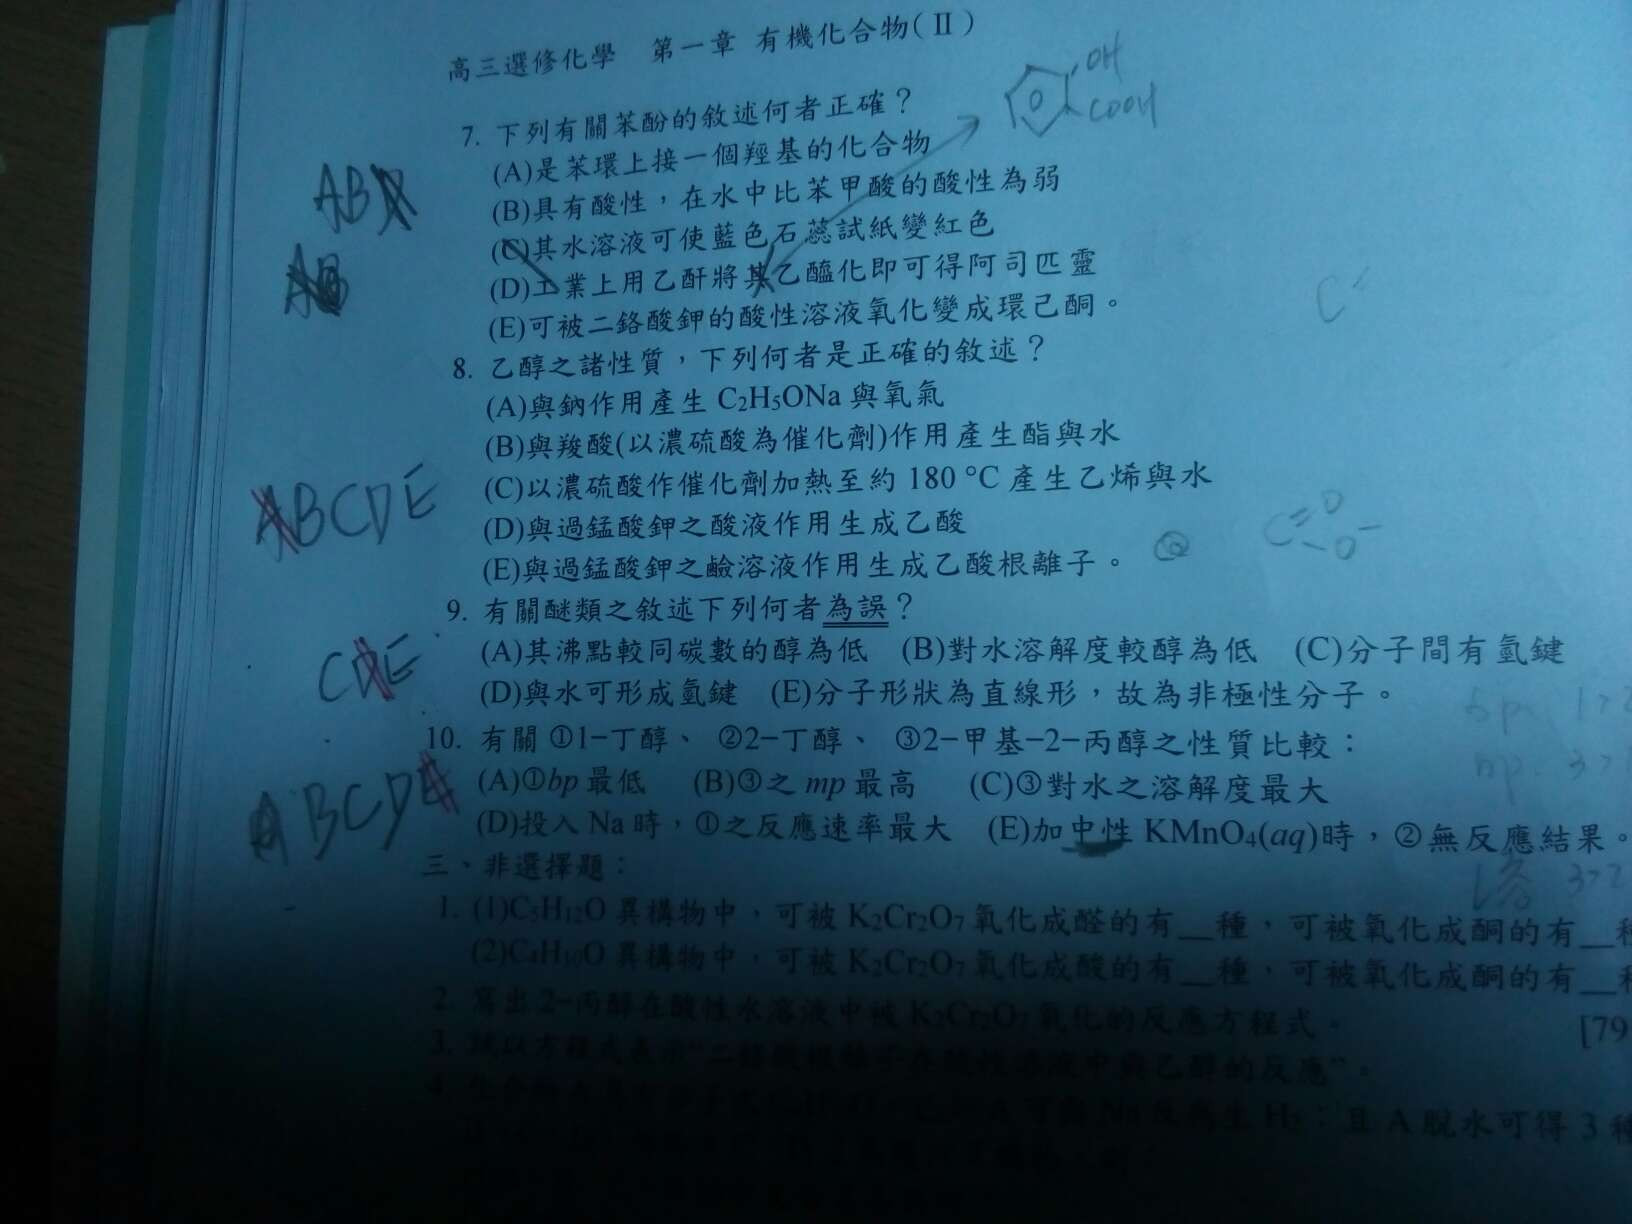 高三選修化學 第一章 有機化合物(Ⅱ)
OH
COOH
7. 下列有關苯酚的敘述何者正確？
(A)是苯環上接一個羥基的化合物
AB
(B)具有酸性，在水中比苯甲酸的酸性為弱
(C)其水溶液可使藍色石蕊試紙變紅色
AB
(D)工業上用乙酐將其乙醯化即可得阿司匹靈
(E)可被二鉻酸鉀的酸性溶液氧化變成環己酮。
C
8. 乙醇之諸性質，下列何者是正確的敘述？
(A)與鈉作用產生 C₂H₅ONa 與氧氣
(B)與羧酸(以濃硫酸為催化劑)作用產生酯與水
(C)以濃硫酸作催化劑加熱至約 180 °C 產生乙烯與水
ABCDE
(D)與過錳酸鉀之酸液作用生成乙酸
(E)與過錳酸鉀之鹼溶液作用生成乙酸根離子。
9. 有關醚類之敘述下列何者為誤？
(A)其沸點較同碳數的醇為低 (B)對水溶解度較醇為低 (C)分子間有氫鍵
CDE
(D)與水可形成氫鍵 (E)分子形狀為直線形，故為非極性分子。
10. 有關①1-丁醇、 ②2-丁醇、 ③2-甲基-2-丙醇之性質比較：
(A)①bp 最低 (B)③之 mp 最高 (C)③對水之溶解度最大
BCD
(D)投入 Na 時，①之反應速率最大 (E)加中性 KMnO₄(aq)時，②無反應結果。
三、非選擇題：
1. (1)C₅H₁₂O 異構物中，可被 K₂Cr₂O₇ 氧化成醛的有__種，可被氧化成酮的有__種
(2)C₄H₁₀O 異構物中，可被 K₂Cr₂O₇ 氧化成酸的有__種，可被氧化成酮的有__種
2. 寫出 2-丙醇在酸性水溶液中被 K₂Cr₂O₇ 氧化的反應方程式。
[79
3. 試以方程式表示"二鉻酸根離子在酸性溶液中與乙醇的反應"。
4.
Na 反應生 H₂；且 A 脫水可得 3 種